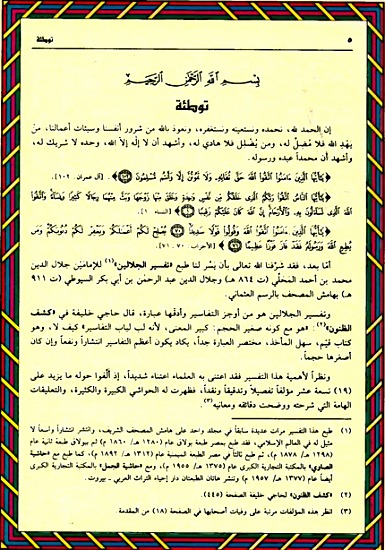 توطئة ٥
بسم الله الرحمن الرحيم
توطئة
إن الحمد لله، نحمده ونستعينه ونستغفره، ونعوذ بالله من شرور أنفسنا وسيئات أعمالنا، من
يهد الله فلا مضل له، ومن يضلل فلا هادي له، وأشهد أن لا إله إلا الله، وحده لا شريك له،
وأشهد أن محمداً عبده ورسوله.
﴿يَٰٓأَيُّهَا ٱلَّذِينَ ءَامَنُوا۟ ٱتَّقُوا۟ ٱللَّهَ حَقَّ تُقَاتِهِۦ وَلَا تَمُوتُنَّ إِلَّا وَأَنتُم مُّسْلِمُونَ ١٠٢﴾ [آل عمران: ١٠٢].
﴿يَٰٓأَيُّهَا ٱلنَّاسُ ٱتَّقُوا۟ رَبَّكُمُ ٱلَّذِى خَلَقَكُم مِّن نَّفْسٍ وَٰحِدَةٍ وَخَلَقَ مِنْهَا زَوْجَهَا وَبَثَّ مِنْهُمَا رِجَالًا كَثِيرًا وَنِسَآءً وَٱتَّقُوا۟
ٱللَّهَ ٱلَّذِى تَسَآءَلُونَ بِهِۦ وَٱلْأَرْحَامَ إِنَّ ٱللَّهَ كَانَ عَلَيْكُمْ رَقِيبًا ١﴾ [النساء: ١].
﴿يَٰٓأَيُّهَا ٱلَّذِينَ ءَامَنُوا۟ ٱتَّقُوا۟ ٱللَّهَ وَقُولُوا۟ قَوْلًا سَدِيدًا ٧٠ يُصْلِحْ لَكُمْ أَعْمَٰلَكُمْ وَيَغْفِرْ لَكُمْ ذُنُوبَكُمْ وَمَن
يُطِعِ ٱللَّهَ وَرَسُولَهُۥ فَقَدْ فَازَ فَوْزًا عَظِيمًا ٧١﴾ [الأحزاب: ٧٠ ـ ٧١].
أمّا بعد، فقد شرّفنا الله تعالى بأن يسّر لنا طبع «تفسير الجلالين» للإمامَيْن جلال الدين
محمد بن أحمد المَحَلّي (ت ٨٦٤ هـ) وجلال الدين عبد الرحمٰن بن أبي بكر السيوطي (ت ٩١١
هـ) بهامش المصحف بالرسم العثماني.
وتفسير الجلالين هو من أوجز التفاسير وأدقّها عبارة، قال حاجي خليفة في «كشف
الظنون»(٢): «هو مع كونه صغير الحجم: كبير المعنى، لأنه لب لباب التفاسير» كيف لا، وهو
كتاب قيّم، سهل المأخذ، مختصر العبارة جداً، يكاد يكون أعظم التفاسير انتشاراً ونفعاً وإن كان
أصغرها حجماً.
ونظراً لأهمية هذا التفسير فقد اعتنى به العلماء اعتناء شديداً، إذ ألّفوا حوله ما يزيد على
(١٩) تسعة عشر مؤلفاً تفصيلاً وتدقيقاً ونقداً، فظهرت له الحواشي الكبيرة والكثيرة، والتعليقات
الهامة التي شرحته ووضحت دقائقه ومعانيه(٣).
(١) طبع هذا التفسير مرات عديدة سابقاً في مجلد واحد على هامش المصحف الشريف، وانتشر انتشاراً واسعاً لا
مثيل له في العالم الإسلامي، فقد طبع بمصر طبعة بولاق عام (١٢٨٠ هـ/ ١٨٦٠ م) ثم ببولاق طبعة ثانية عام
(١٢٩٨ هـ/ ١٨٧٨ م)، ثم طبع ثالثاً في مصر الطبعة الميمنية عام (١٣١٢ هـ/ ١٨٩٢ م)، كما طبع مع «حاشية
الصاوي» بالمكتبة التجارية الكبرى عام (١٣٧٥ هـ/ ١٩٥٥ م)، ومع «حاشية الجمل» بالمكتبة التجارية الكبرى
أيضاً عام (١٣٧٧ هـ/ ١٩٥٧ م) وتنشر هاتان الطبعتان دار إحياء التراث العربي ـ بيروت.
(٢) «كشف الظنون» لحاجي خليفة صفحة (٤٤٥).
(٣) انظر هذه المؤلفات مرتبة على وفيات أصحابها في الصفحة (١٨) من المقدمة.